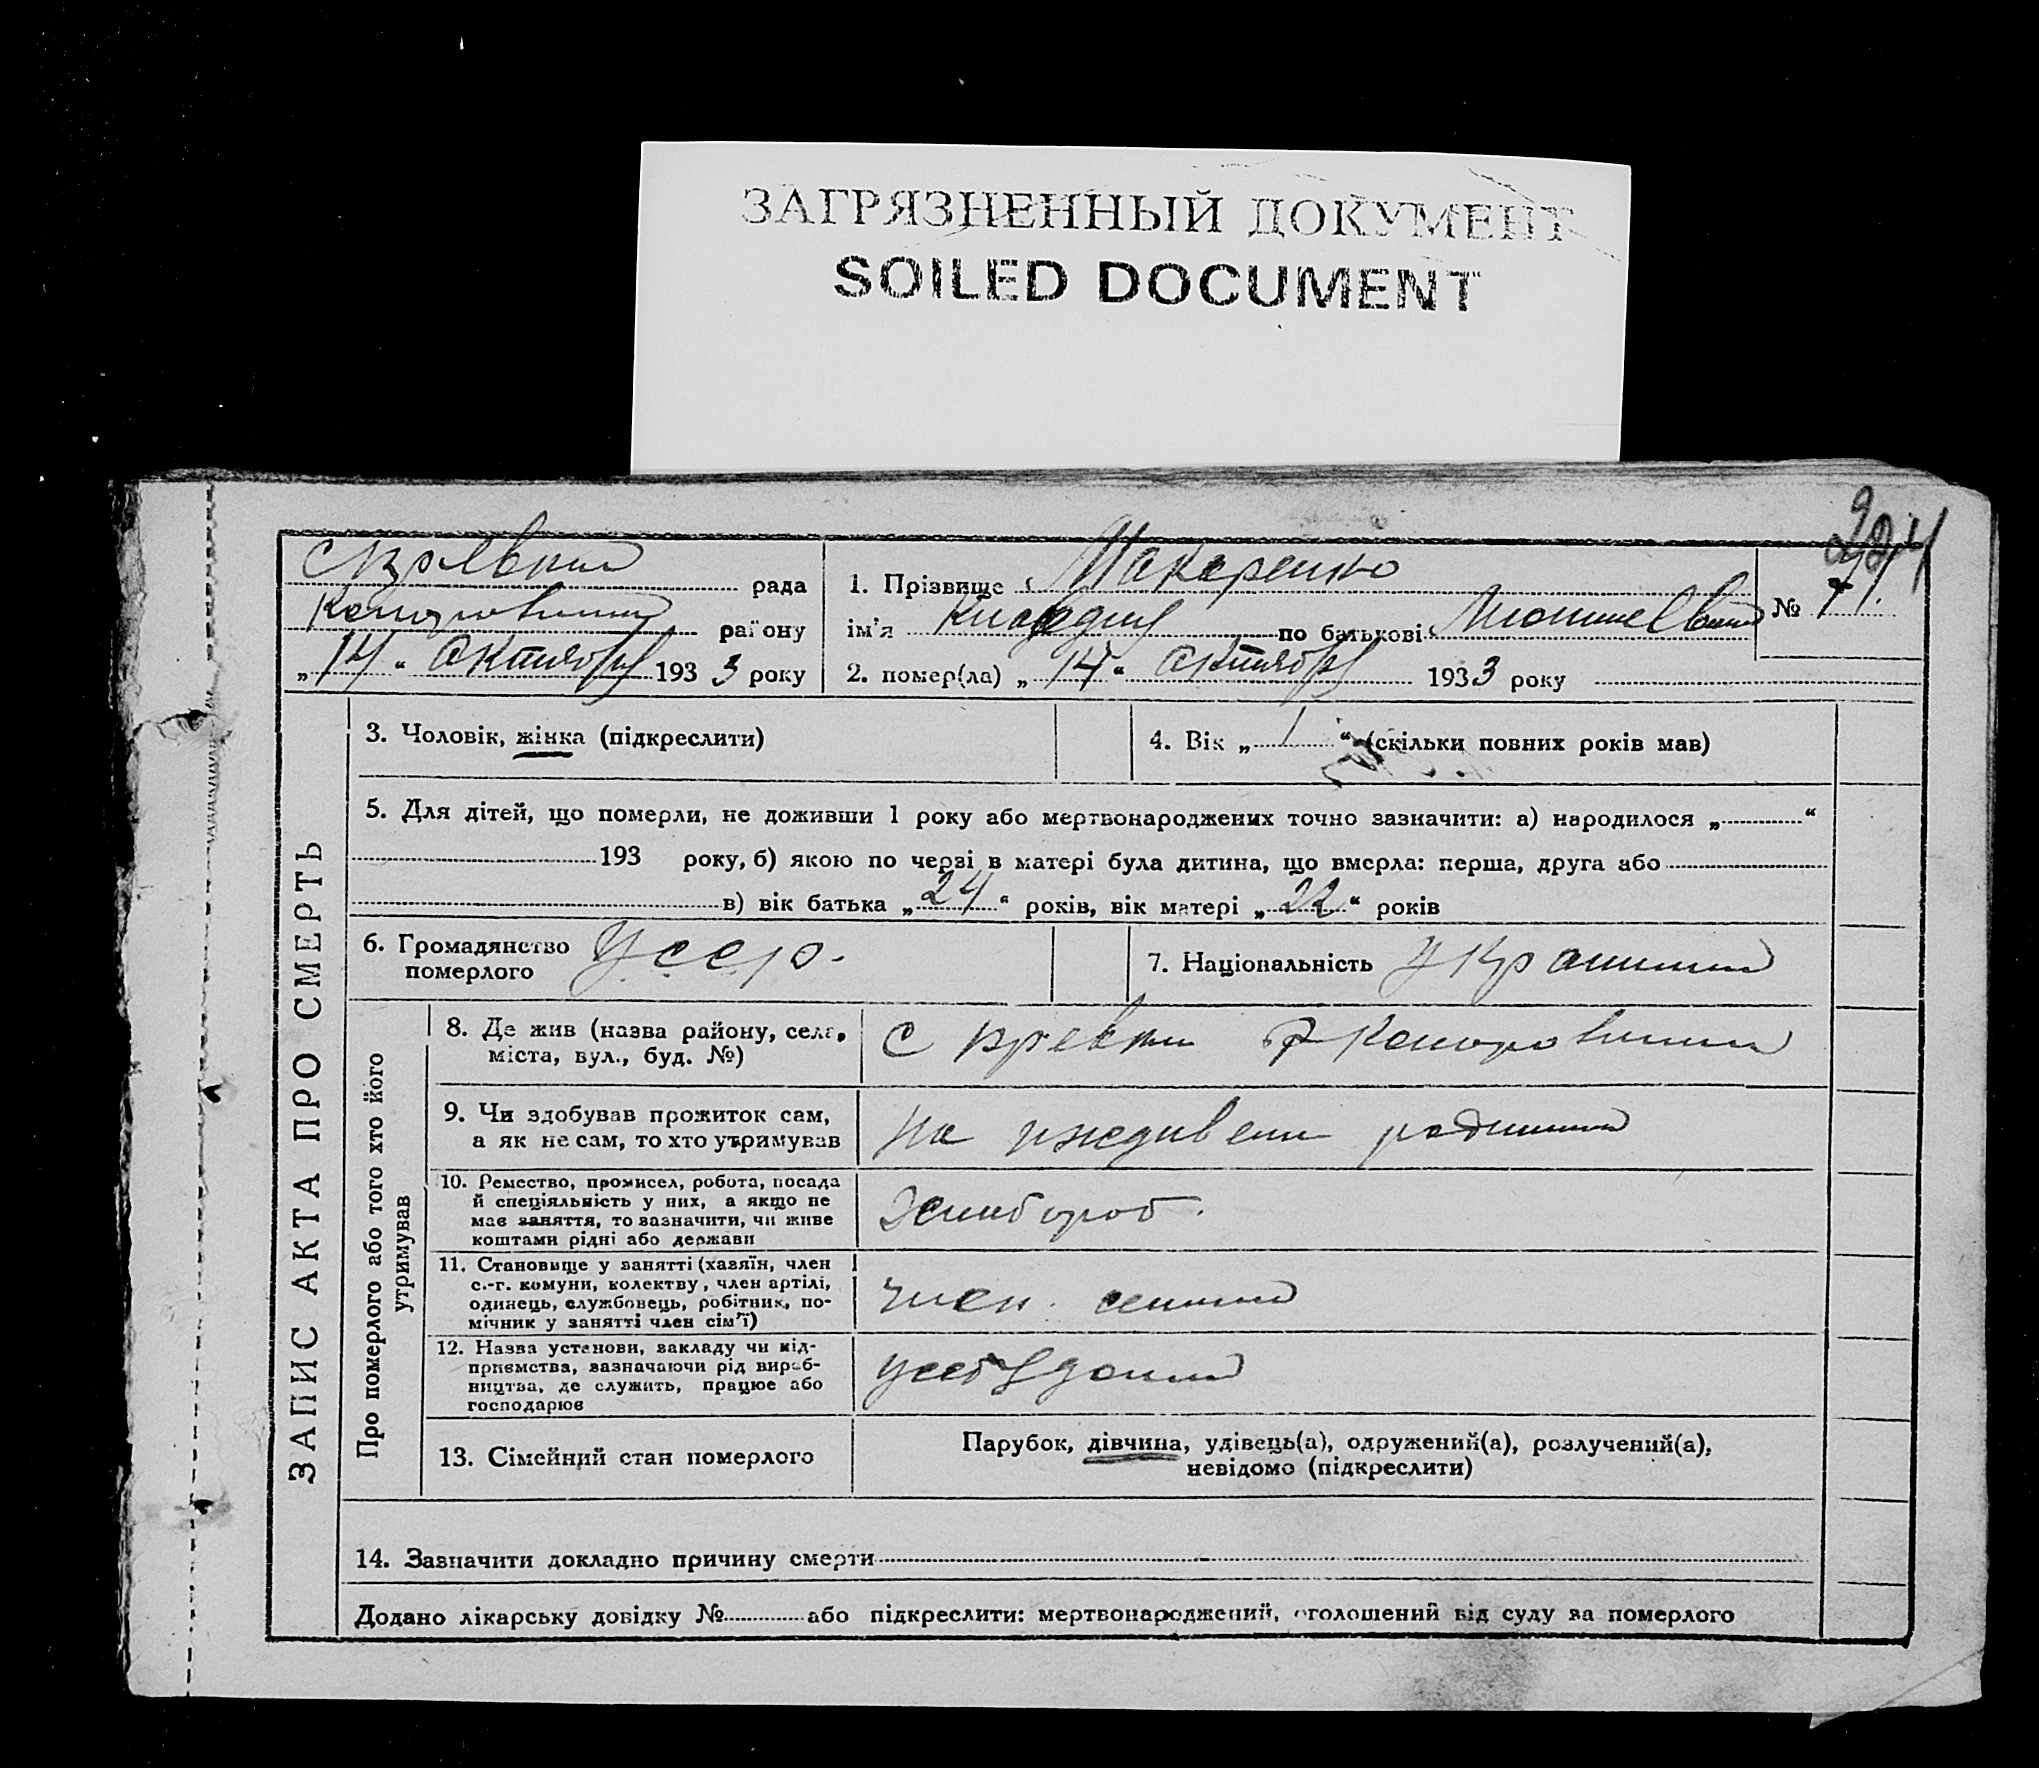 ЗАГРЯЗНЕННЫЙ ДОКУМЕНТ
SOILED DOCUMENT
ЗАПИС АКТА ПРО СМЕРТЬ
рада
району
„14“ Октября 1933 року
1. Прізвище Макаренко
ім'я по батькові
№
2. помер(ла) „14“ Октября 1933 року
3. Чоловік, жінка (підкреслити)
4. Вік „1“ (скільки повних років мав)
5. Для дітей, що померли, не доживши 1 року або мертвонароджених точно зазначити: а) народилося „ “
193 року, б) якою по черзі в матері була дитина, що вмерла: перша, друга або
в) вік батька „24“ років, вік матері „22“ років
6. Громадянство
померлого
УССР.
7. Національність
Про померлого або того хто його
утримував
8. Де жив (назва району, села,
міста, вул., буд. №)
с
9. Чи здобував прожиток сам,
а як не сам, то хто утримував
на
10. Ремество, промисел, робота, посада
й спеціяльність у них, а якщо не
має заняття, то зазначити, чи живе
коштами рідні або держави
11. Становище у занятті (хазяїн, член
с.-г. комуни, колективу, член артілі,
одинець, службовець, робітник, по-
мічник у занятті член сім'ї)
член
12. Назва установи, закладу чи під-
приємства, зазначаючи рід вироб-
ництва, де служить, працює або
господарює
13. Сімейний стан померлого
Парубок, дівчина, удівець(а), одружений(а), розлучений(а),
невідомо (підкреслити)
14. Зазначити докладно причину смерти
Додано лікарську довідку № або підкреслити: мертвонароджений, оголошений від суду за померлого